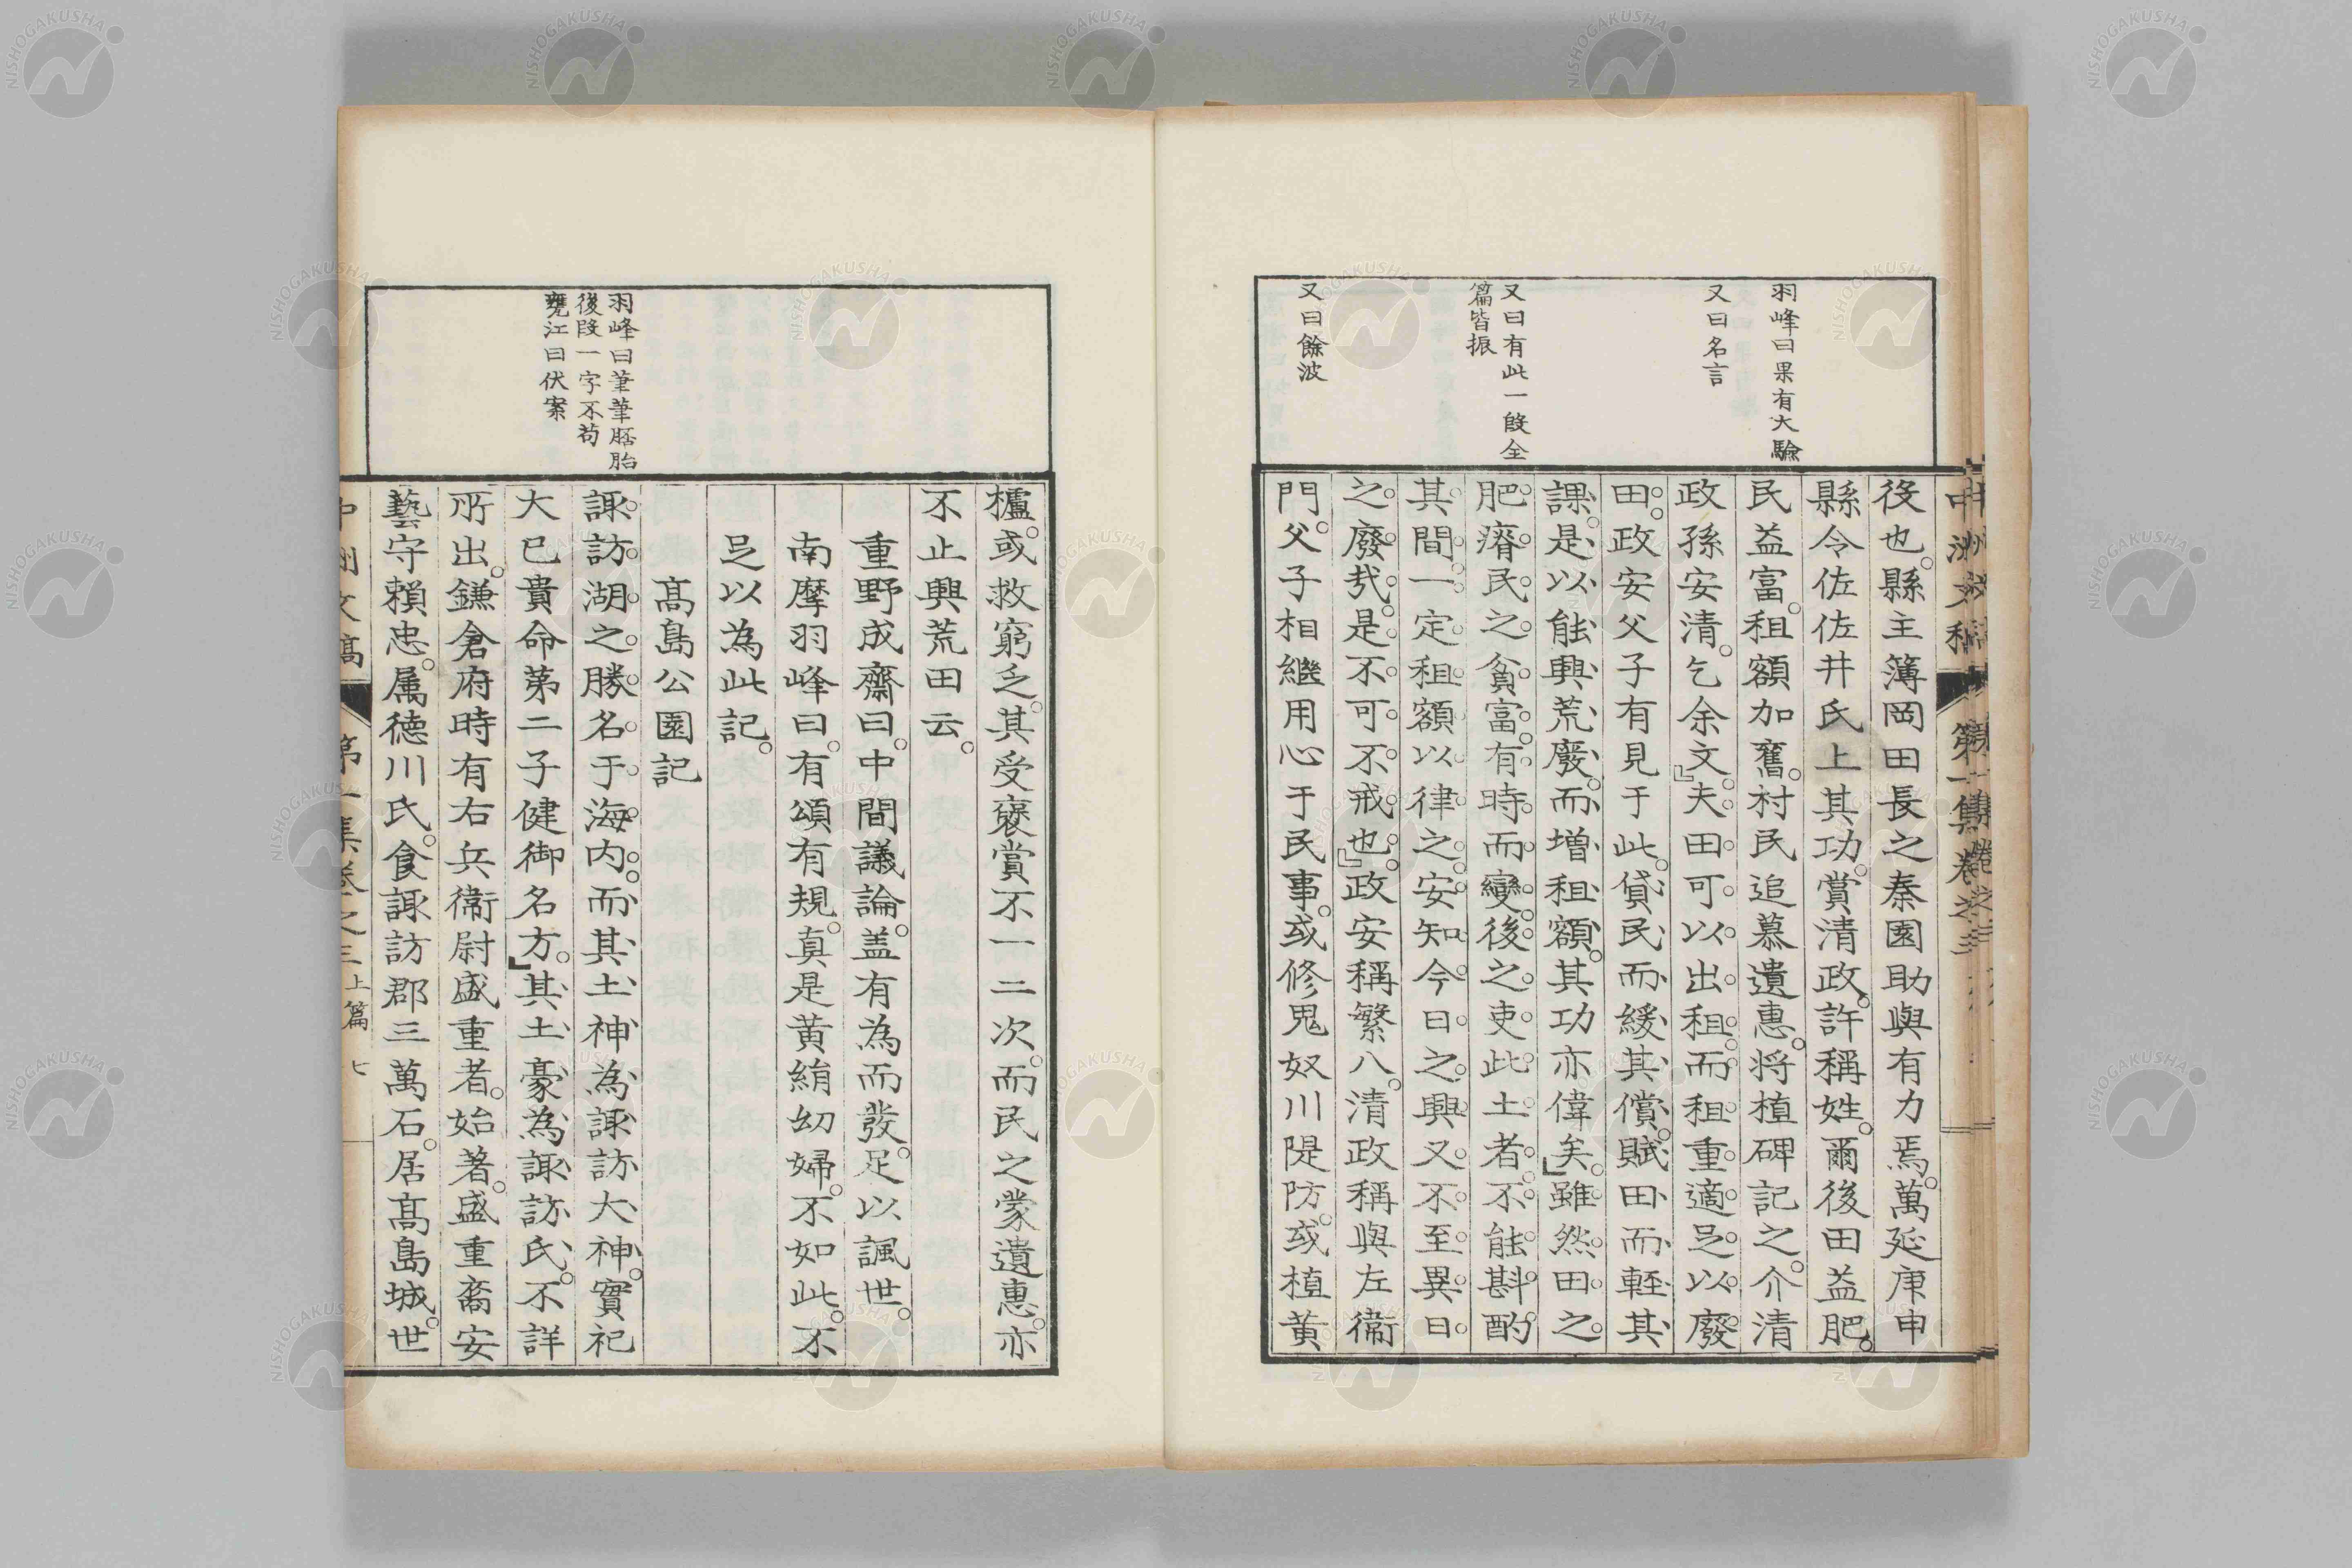 羽峰曰果有大驗
又曰名言
又曰有此一段全
篇皆振
又曰餘波
役也。縣主簿岡田長之秦園助與有力焉。萬延庚申
縣令佐佐井氏上其功。賞清政。許稱姓。爾後田益肥。
民益富。租額加舊。村民追慕遺惠。將植碑記之。介清
政孫安清。乞余文。』夫田可以出租。而租重適足以廢
田。政安父子有見于此。貸民而緩其償。賦田而輕其
課。是以能興荒廢。而增租額。其功亦偉矣。』雖然田之
肥瘠。民之貧富。有時而變。後之吏此土者。不能斟酌
其間。一定租額以律之。安知今日之興。又不至異日
之廢哉。是不可不戒也。』政安稱繁八。清政稱與左衞
門。父子相繼用心于民事。或修鬼奴川隄防。或植黃
櫨。或救窮乏。其受襃賞不一二次。而民之蒙遺惠。亦
不止興荒田云。
重野成齋曰。中間議論。盖有為而發。足以諷世。
南摩羽峰曰。有頌有規。真是黃絹幼婦。不如此。不
足以為此記。
高島公園記
諏訪湖之勝。名于海內。而其土神為諏訪大神。實祀
大巳貴命第二子健御名方。』其土豪為諏訪氏。不詳
所出。鎌倉府時有右兵衞尉盛重者。始著。盛重裔安
藝守賴忠。属德川氏。食諏訪郡三萬石。居高島城。世
羽峰曰筆筆胚胎
後段一字不苟
甕江曰伏案
中洲文稿 第一集卷之三上篇 七